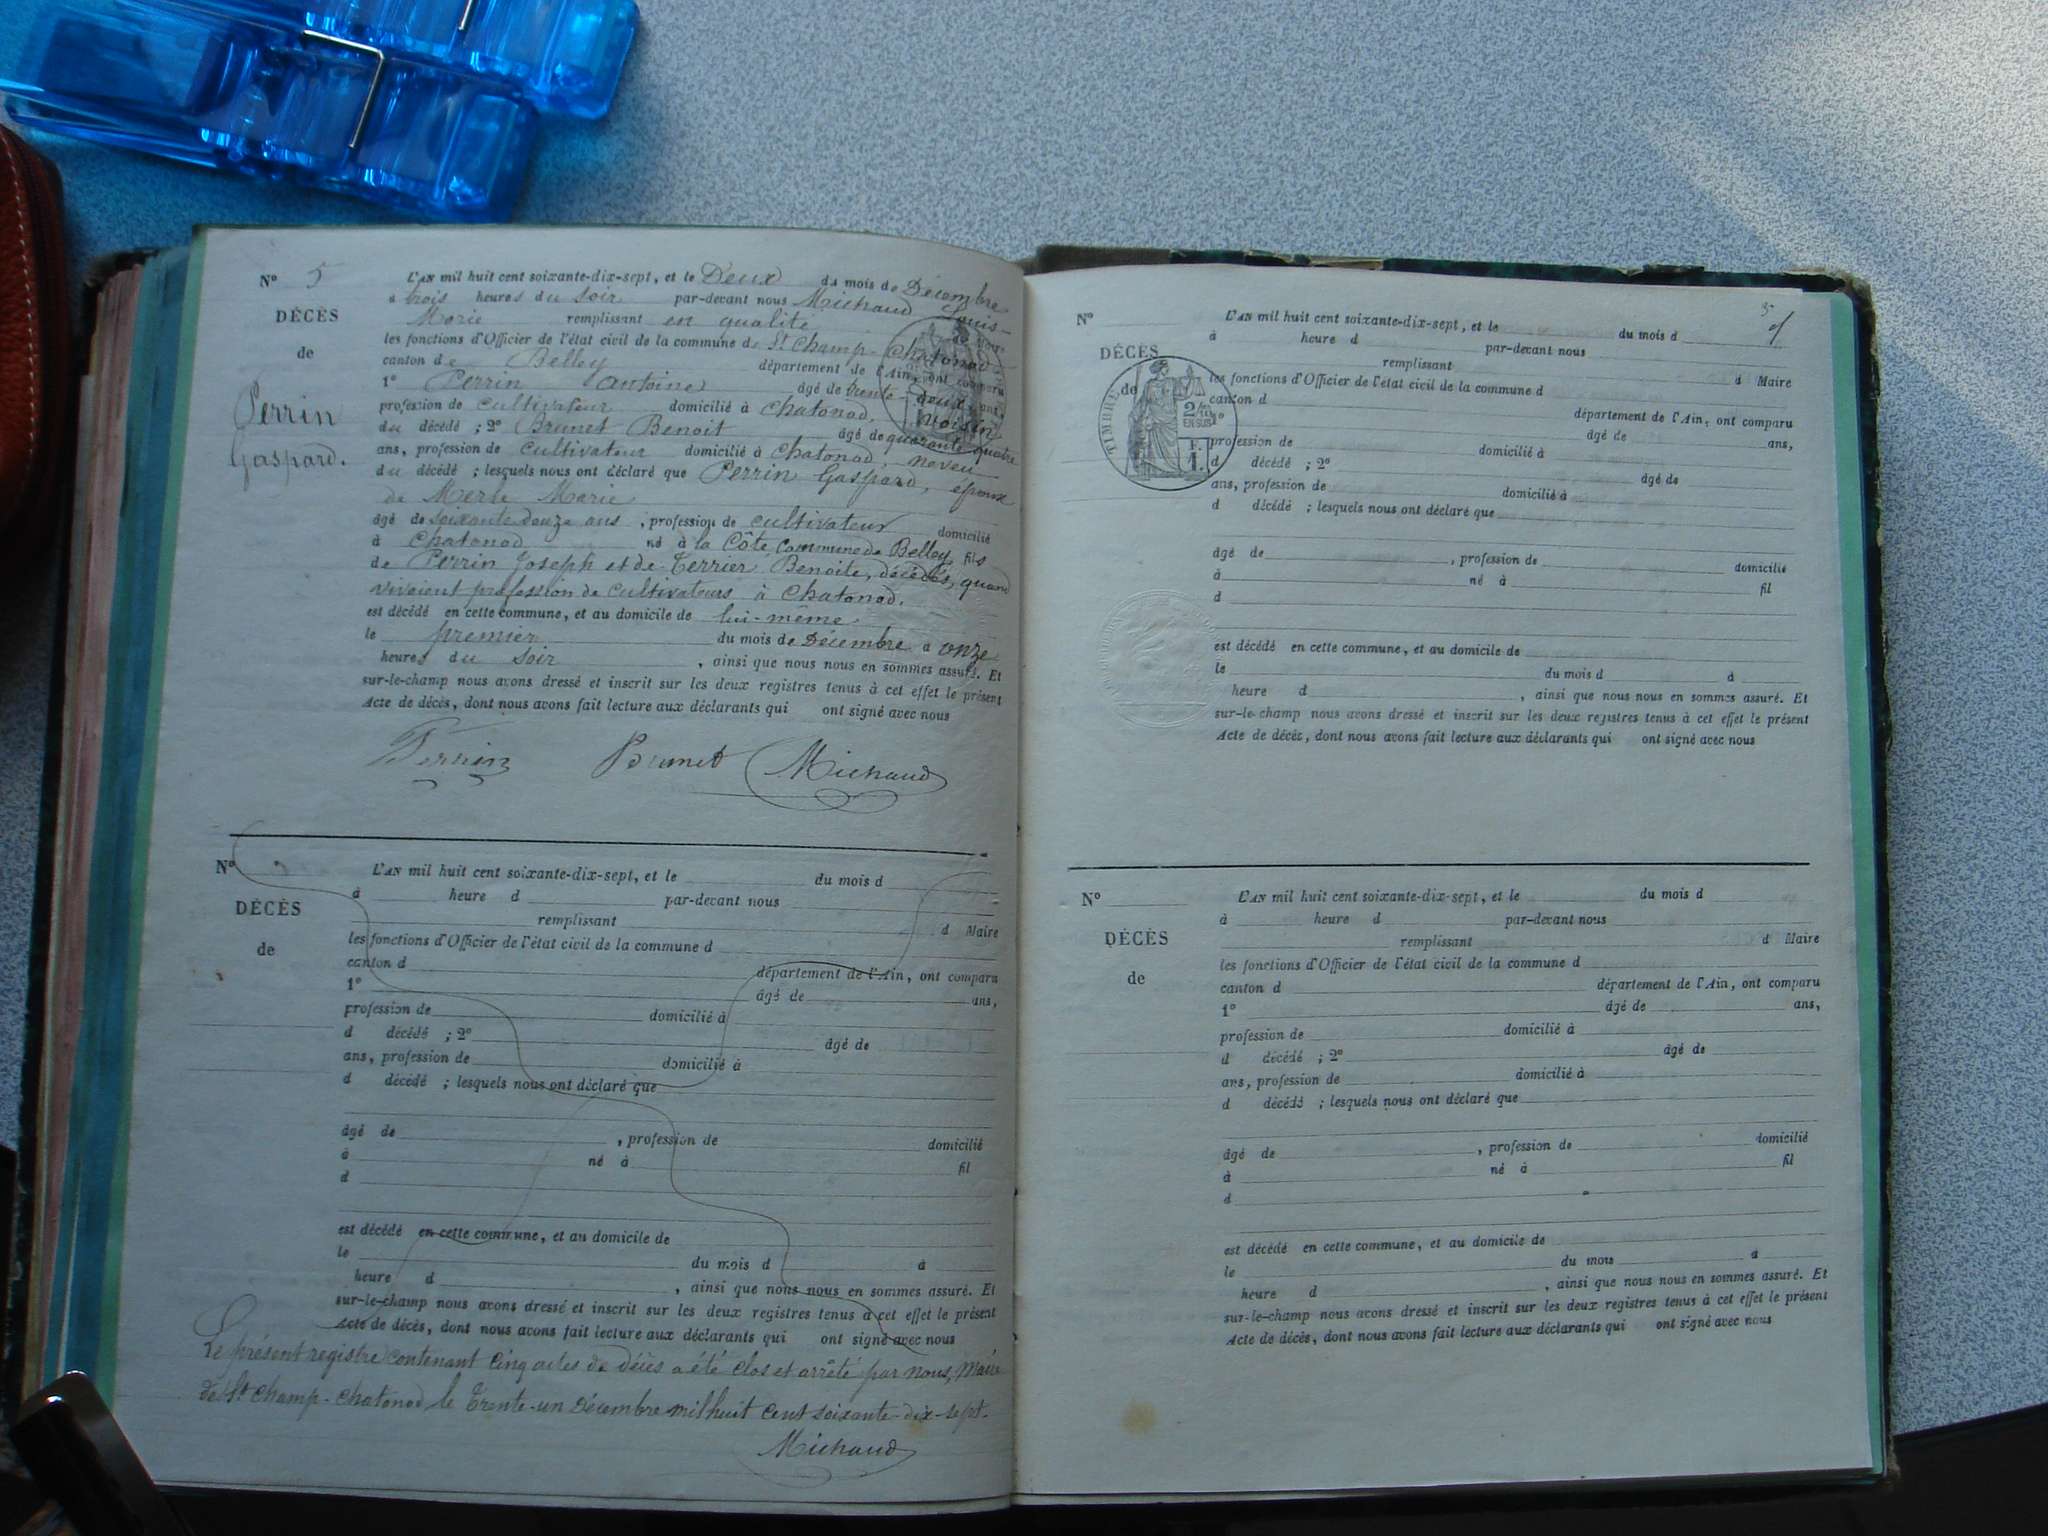 N° 5
DÉCÈS
de
Perrin
Gaspard.
L'AN mil huit cent soixante-dix-sept, et le Deux du mois de Décembre
à trois heures du soir par-devant nous Michaud Louis-
Marie remplissant en qualité de Maire
les fonctions d'Officier de l'état civil de la commune de St Champ-Chatonod
canton de Belley département de l'Ain, ont comparu
1° Perrin Antoine âgé de trente-deux ans,
profession de cultivateur domicilié à Chatonod, voisin
du décédé ; 2° Brunet Benoit âgé de quarante quatre
ans, profession de cultivateur domicilié à Chatonod, neveu
du décédé ; lesquels nous ont déclaré que Perrin Gaspard, époux
de Merle Marie
âgé de soixante douze ans, profession de cultivateur domicilié
à Chatonod né à la Côte commune de Belley, fils
de Perrin Joseph et de Terrier Benoite, décédés, quand
vivaient profession de cultivateurs à Chatonod.
est décédé en cette commune, et au domicile de lui-même
le premier du mois de Décembre à onze
heures du soir, ainsi que nous nous en sommes assuré. Et
sur-le-champ nous avons dressé et inscrit sur les deux registres tenus à cet effet le présent
Acte de décès, dont nous avons fait lecture aux déclarants qui ont signé avec nous
Perrin Brunet Michaud
N°
DÉCÈS
de
L'AN mil huit cent soixante-dix-sept, et le du mois d
à heure d par-devant nous
remplissant d Maire
les fonctions d'Officier de l'état civil de la commune d
canton d département de l'Ain, ont comparu
1° âgé de ans,
profession de domicilié à
d décédé ; 2° âgé de
ans, profession de domicilié à
d décédé ; lesquels nous ont déclaré que
âgé de , profession de domicilié
à né à fil
d
est décédé en cette commune, et au domicile de
le du mois d à
heure d , ainsi que nous nous en sommes assuré. Et
sur-le-champ nous avons dressé et inscrit sur les deux registres tenus à cet effet le présent
Acte de décès, dont nous avons fait lecture aux déclarants qui ont signé avec nous
Le présent registre contenant cinq actes de décès a été clos et arrêté par nous, Maire
de St Champ-Chatonod, le Trente-un Décembre mil huit cent soixante-dix-sept.
Michaud
N°
DÉCÈS
de
TIMBRE
2/10
EN SUS
F.
1.
L'AN mil huit cent soixante-dix-sept, et le du mois d
à heure d par-devant nous
remplissant d Maire
les fonctions d'Officier de l'état civil de la commune d
canton d département de l'Ain, ont comparu
1° âgé de ans,
profession de domicilié à
d décédé ; 2° âgé de
ans, profession de domicilié à
d décédé ; lesquels nous ont déclaré que
âgé de , profession de domicilié
à né à fil
d
est décédé en cette commune, et au domicile de
le du mois d à
heure d , ainsi que nous nous en sommes assuré. Et
sur-le-champ nous avons dressé et inscrit sur les deux registres tenus à cet effet le présent
Acte de décès, dont nous avons fait lecture aux déclarants qui ont signé avec nous
N°
DÉCÈS
de
L'AN mil huit cent soixante-dix-sept, et le du mois d
à heure d par-devant nous
remplissant d Maire
les fonctions d'Officier de l'état civil de la commune d
canton d département de l'Ain, ont comparu
1° âgé de ans,
profession de domicilié à
d décédé ; 2° âgé de
ans, profession de domicilié à
d décédé ; lesquels nous ont déclaré que
âgé de , profession de domicilié
à né à fil
d
est décédé en cette commune, et au domicile de
le du mois à
heure d , ainsi que nous nous en sommes assuré. Et
sur-le-champ nous avons dressé et inscrit sur les deux registres tenus à cet effet le présent
Acte de décès, dont nous avons fait lecture aux déclarants qui ont signé avec nous